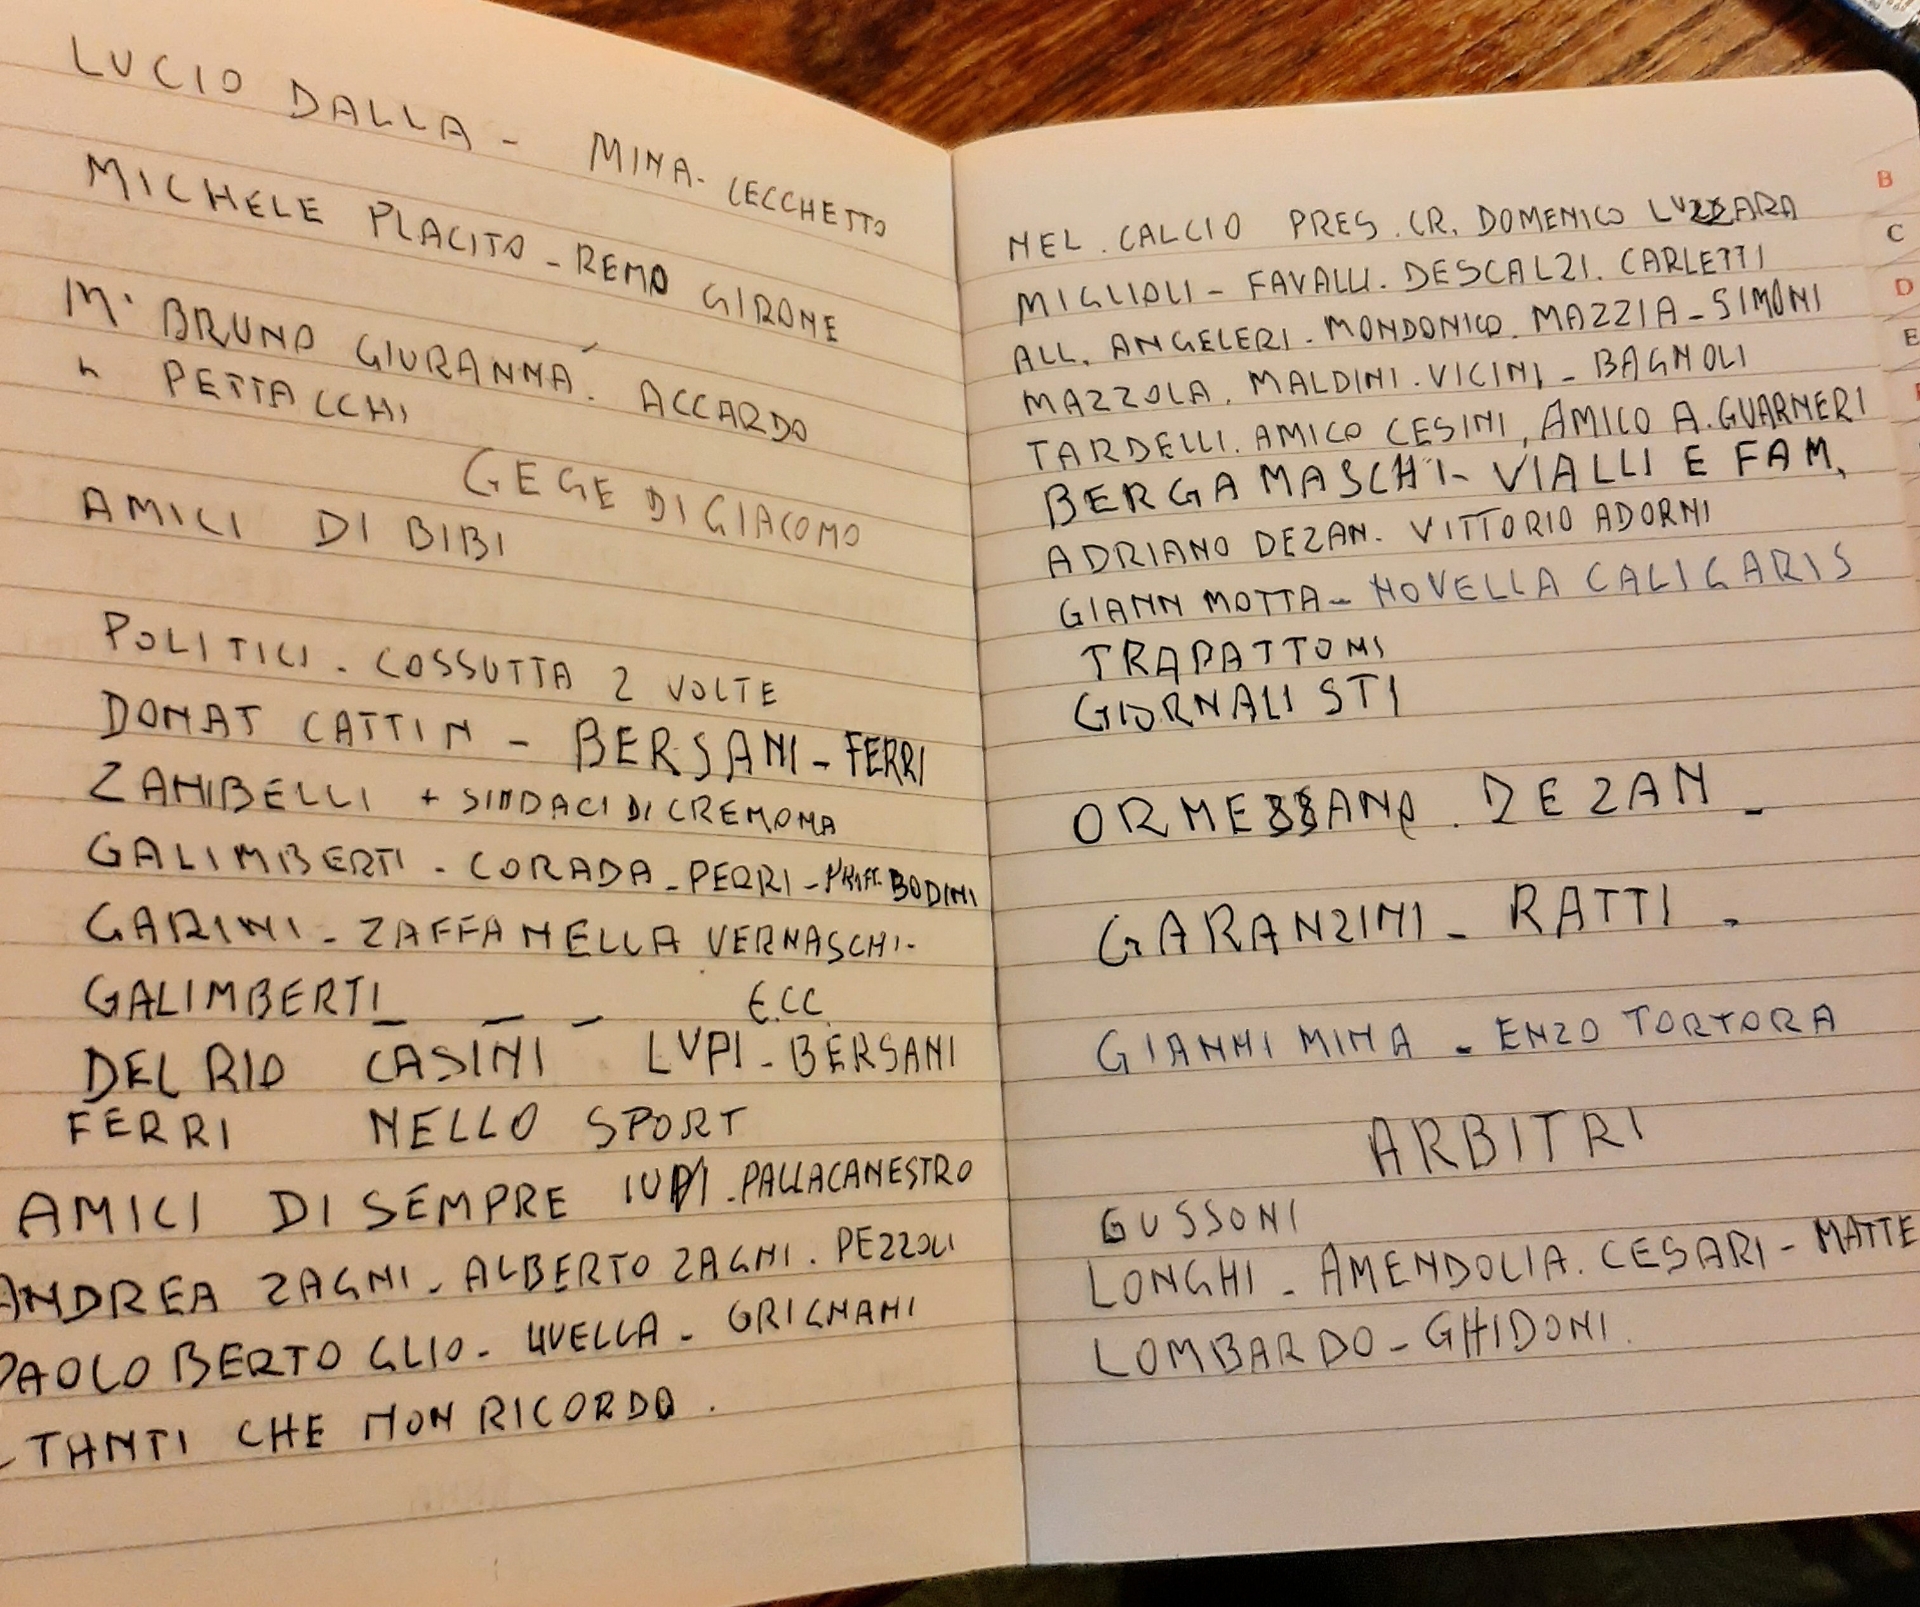 LUCIO DALLA - MINA - CECCHETTO
MICHELE PLACITO - REMO GIRONE
Mº BRUNO GIURANNÁ. ACCARDO
" PETTACCHI
GEGE DI GIACOMO
AMICI DI BIBI
POLITICI - COSSUTTA 2 VOLTE
DONAT CATTIN - BERSANI - FERRI
ZANIBELLI + SINDACI DI CREMONA
GALIMBERTI - CORADA - PERRI - PROF. BODINI
GARINI - ZAFFANELLA VERNASCHI -
GALIMBERTI _ _ _ E.CC.
DEL RIO CASINI LUPI - BERSANI
FERRI NELLO SPORT
AMICI DI SEMPRE PALLACANESTRO
ANDREA ZAGNI - ALBERTO ZAGNI . PEZZOLI
PAOLO BERTOGLIO - UVELLA - GRIGNANI
TANTI CHE NON RICORDO .
NEL . CALCIO PRES . CR. DOMENICO LUZZARA
MIGLIOLI - FAVALLI . DESCALZI . CARLETTI
ALL. ANGELERI . MONDONICO . MAZZIA - SIMONI
MAZZOLA . MALDINI . VICINI - BAGNOLI
TARDELLI . AMICO CESINI , AMICO A . GUARNERI
BERGAMASCHI - VIALLI E FAM.
ADRIANO DEZAN . VITTORIO ADORNI
GIANN MOTTA - NOVELLA CALIGARIS
TRAPATTONI
GIORNALISTI
ORMEZZANO . DEZAN -
GARANZINI - RATTI -
GIANNI MINA - ENZO TORTORA
ARBITRI
GUSSONI
LONGHI - AMENDOLIA . CESARI - MATTE
LOMBARDO - GHIDONI .
B
C
D
E